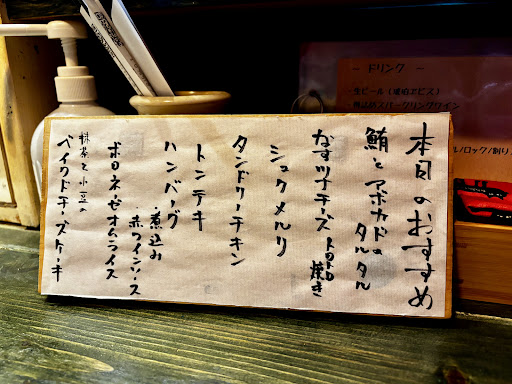 本日のおすすめ
鮪とアボカドの
タルタル
なすツナチーズ
トロトロ
焼き
シュクメルリ
タンドリーチキン
トンテキ
ハンバーグ
・煮込み
・赤ワインソース
ボロネーゼオムライス
抹茶と小豆の
ベイクドチーズケーキ
― ドリンク ―
・生ビール(琥珀ヱビス)
・樽詰めスパークリングワイン